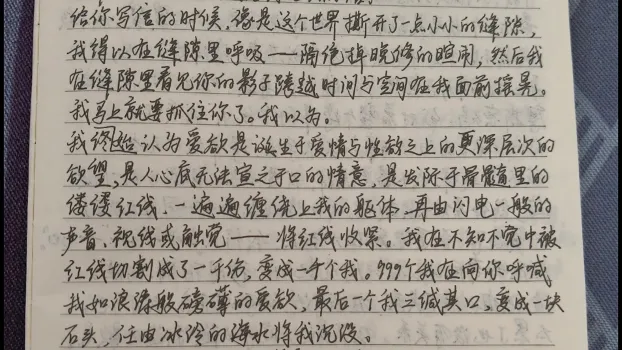 给你写信的时候，像是这个世界撕开了一点小小的缝隙，
我得以在缝隙里呼吸——隔绝掉晚修的喧闹，然后我
在缝隙里看见你的影子跨越时间与空间在我面前摇晃。
我马上就要抓住你了。我以为。
我终始认为爱欲是诞生于爱情与性欲之上的更深层次的
欲望，是人心底无法宣之于口的情意，是发际于骨髓里的
缕缕红线，一遍遍缠绕上我的躯体，再由闪电一般的
声音、视线或触觉——将红线收紧。我在不知不觉中被
红线切割成了一千份，变成一千个我。999个我在向你呼喊
我如浪潮般磅礴的爱欲，最后一个我三缄其口，变成一块
石头，任由冰冷的海水将我沉没。